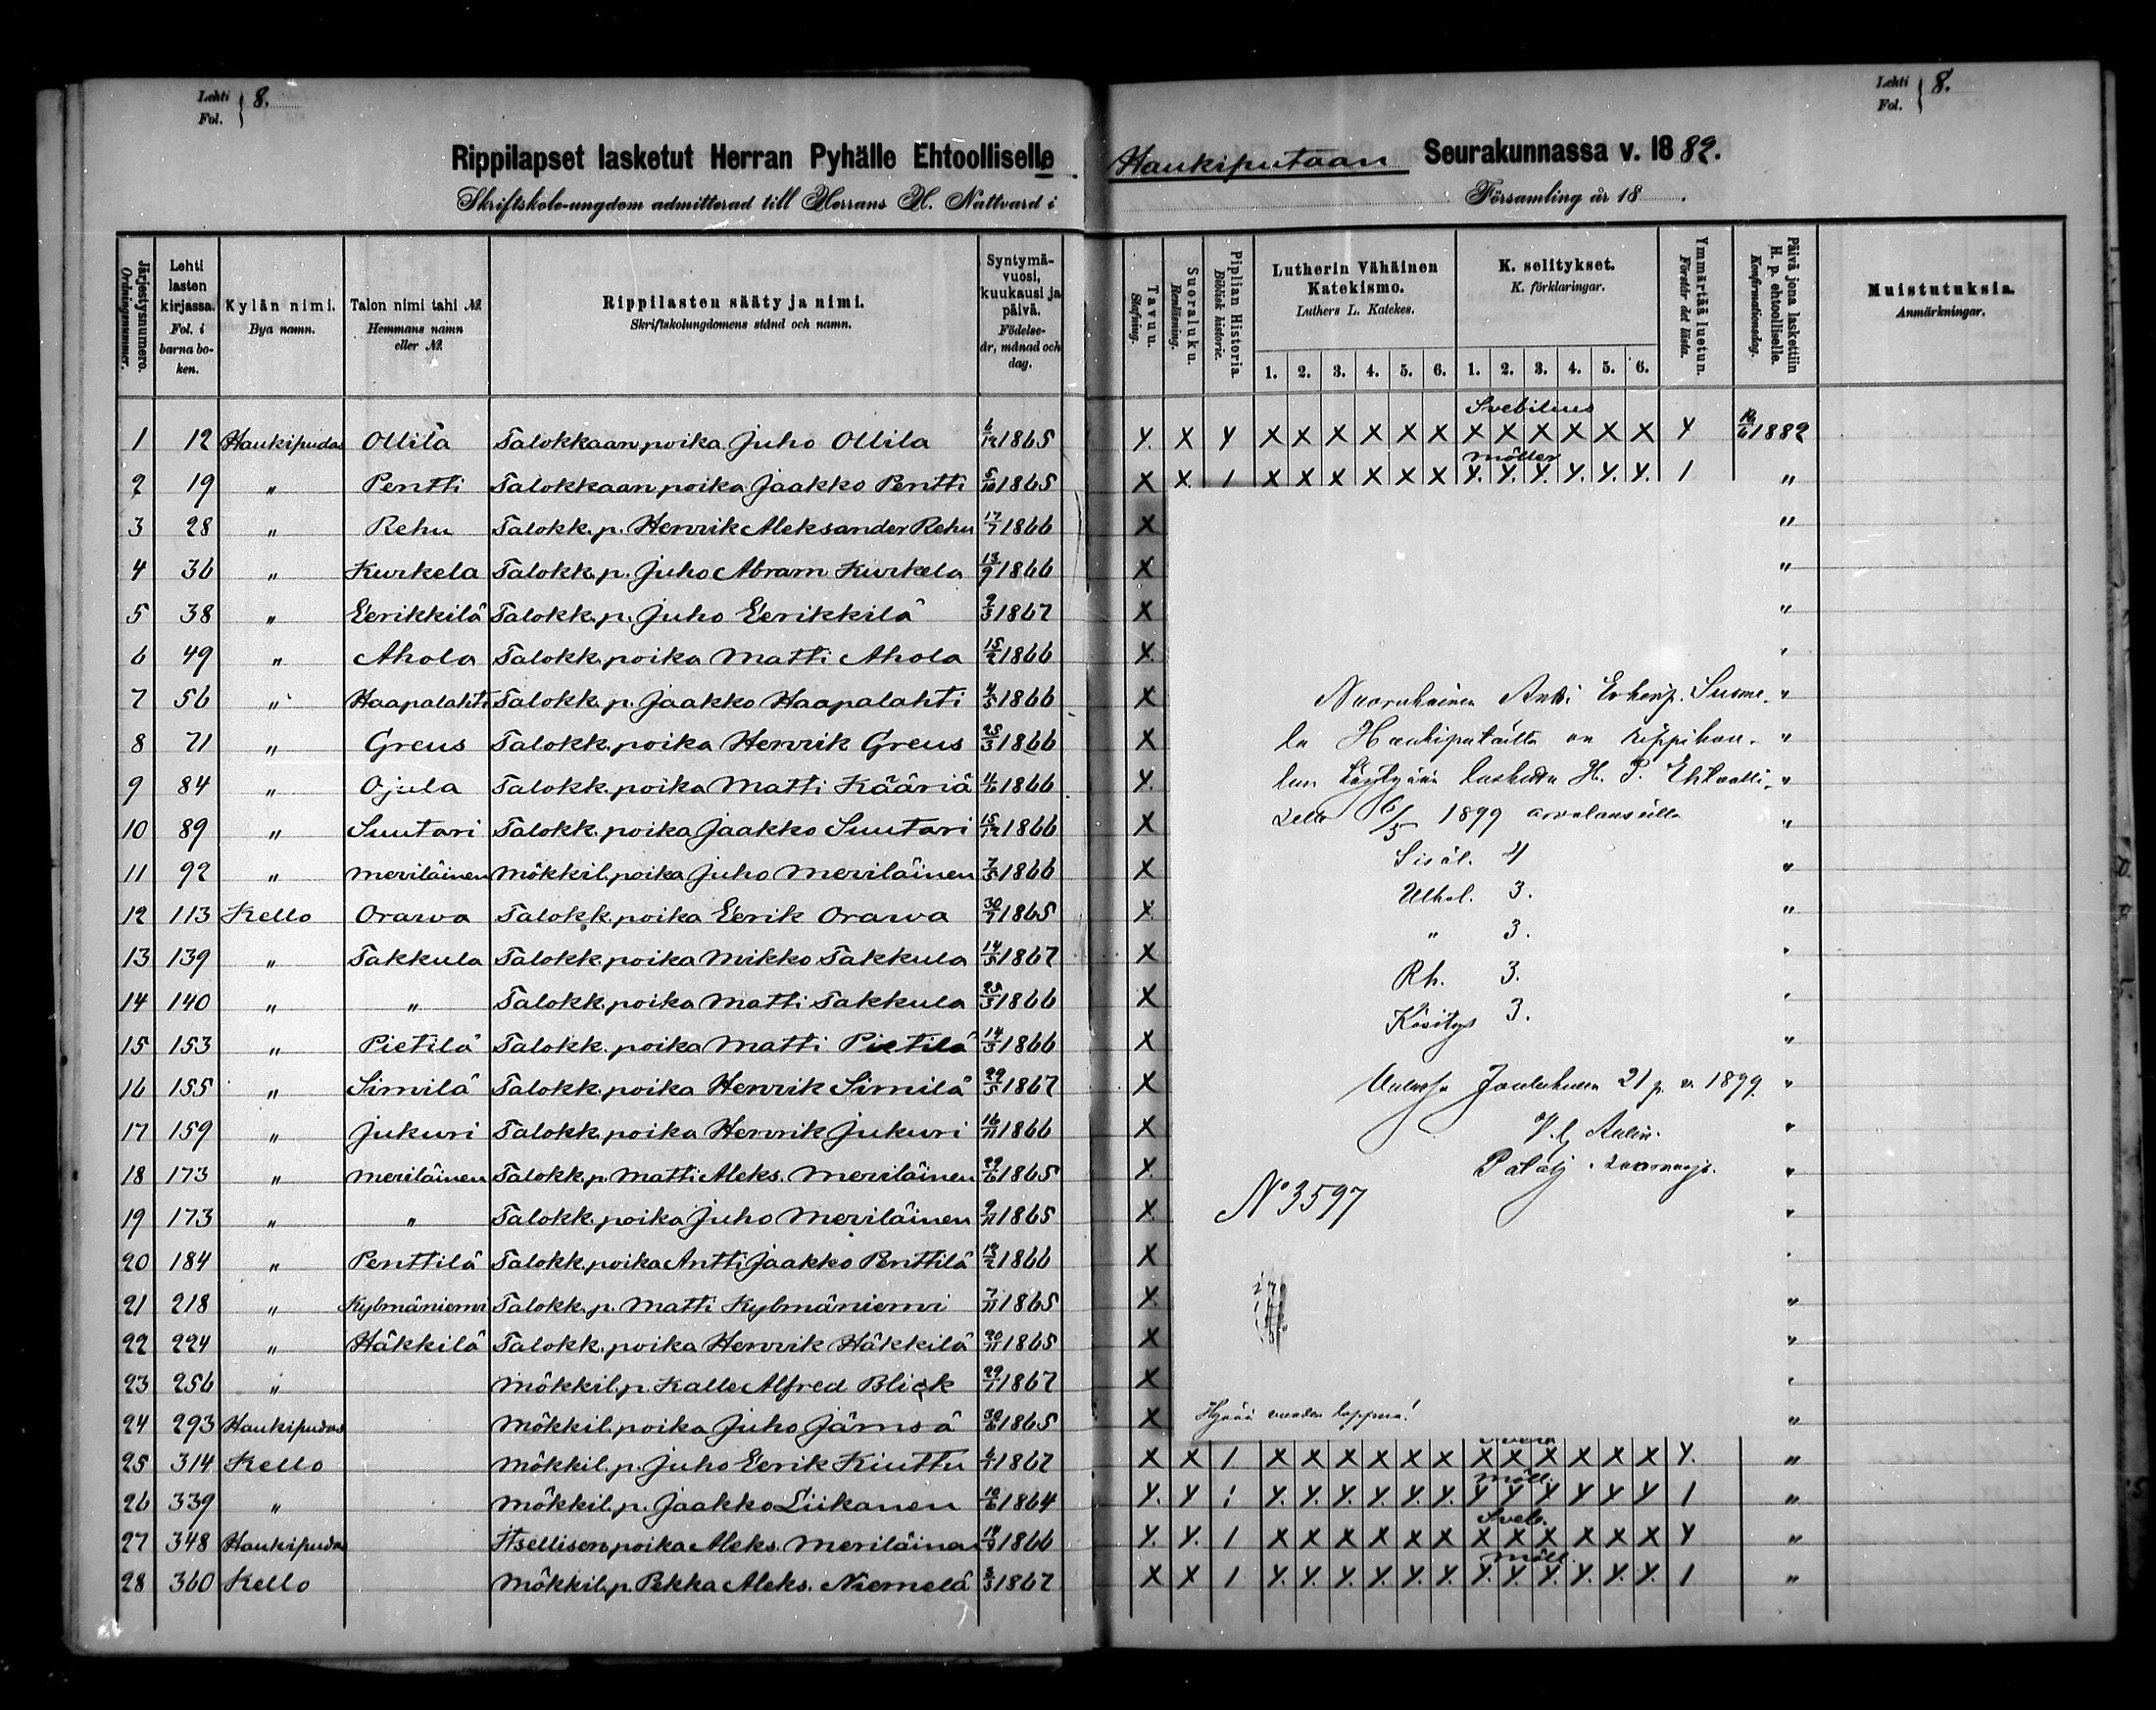 Lehti
Fol. } 8.
Rippilapset lasketut Herran Pyhälle Ehtoolliselle
Skriftskole-ungdom admitterad till Herrans H. Nattvard i
Järjestysnumero. Ordningsnummer.
Lehti lasten kirjassa. Fol. i barna boken.
Kylän nimi. Bya namn.
Talon nimi tahi №. Hemmans namn eller №.
Rippilasten sääty ja nimi. Skriftskolungdomens stånd och namn.
Syntymävuosi, kuukausi ja päivä. Födelseår, månad och dag.
1 12 Haukipudas Ollila Talokkaan poika Juho Ollila 6/12 1865
2 19 " Pentti Talokkaan poika Jaakko Pentti 5/10 1865
3 28 " Rehu Talokk. p. Henrik Aleksander Rehu 17/7 1866
4 36 " Kurkela Talokk. p. Juho Abram Kurkela 13/9 1866
5 38 " Eerikkilä Talokk. p. Juho Eerikkilä 9/3 1867
6 49 " Ahola Talokk. poika Matti Ahola 15/2 1866
7 56 " Haapalahti Talokk. p. Jaakko Haapalahti 4/5 1866
8 71 " Greus Talokk. poika Henrik Greus 25/3 1866
9 84 " Ojula Talokk. poika Matti Kääriä 4/6 1866
10 89 " Suutari Talokk. poika Jaakko Suutari 15/12 1866
11 92 " Meriläinen Mökkil. poika Juho Meriläinen 7/5 1866
12 113 Kello Orawa Talokk. poika Eerik Orawa 30/7 1865
13 139 " Takkula Talokk. poika Mikko Takkula 14/5 1867
14 140 " " Talokk. poika Matti Takkula 25/3 1866
15 153 " Pietilä Talokk. poika Matti Pietilä 14/3 1866
16 155 " Sirniö Talokk. poika Henrik 29/5 1867
17 159 " Jukuri Talokk. poika Henrik Jukuri 16/11 1866
18 173 " Meriläinen Talokk. p. Matti Aleks. Meriläinen 29/6 1865
19 173 " " Talokk. poika Juho Meriläinen 9/11 1865
20 184 " Penttilä Talokk. poika Antti Jaakko Penttilä 1866
21 218 " Kylmäniemi Talokk. p. Matti Kylmäniemi 7/11 1865
22 224 " Häkkilä Talokk. poika Henrik Häkkilä 20/11 1865
23 256 " Mökkil. p. Kalle Alfred Blick 29/7 1867
24 293 Haukipudas Mökkil. poika Juho Jämsä 30/6 1865
25 314 Kello Mökkil. p. Juho Eerik Kiuttu 1867
26 339 " Mökkil. p. Jaakko Liikanen 10/6 1864
27 348 Haukipudas Itsellisen poika Aleks. Meriläinen 1866
28 360 Kello Mökkil. p. Pekka Aleks. Niemelä 1867
Lehti
Fol. } 8.
Haukiputaan Seurakunnassa v. 1882.
Församling år 18 .
Tavuu. Stafning.
Suoraluku. Renläsning.
Piplian Historia. Biblisk historie.
Lutherin Vähäinen Katekismo. Luthers L. Katekes.
1. 2. 3. 4. 5. 6.
K. selitykset. K. förklaringar.
1. 2. 3. 4. 5. 6.
Ymmärtää luetun. Förstår det lästa.
Päivä jona laskettiin H. p. ehtoolliselle. Konfirmationsdag.
Muistutuksia. Anmärkningar.
Svebilius
Y. X Y X X X X X X X X X X X X Y 1882
Möller
X X. 1 X X X X X X Y. Y. Y. Y. Y. Y. 1 "
X "
X "
X "
X
X Antti "
X la Haukiputailta on rippikou- "
Y. lun H. P. Ehtoolli- "
X selle 6/5 1899 arvolauseilla "
X Sisäl. 4 "
X Ulkol. 3. "
X " 3.
X Rh. 3.
X Käsitys 3. "
X Joulukuun 21 p. v. 1899. "
X "
X "
X N° 3597 "
X
X "
X "
X
X Hyvää vuoden loppua! "
X X 1 X X X X X X X X X X X X Y. "
Möll.
Y. Y 1 Y. Y. Y. Y. Y. Y. Y Y Y Y Y Y 1 "
Sveb.
Y. Y. 1 X X X X X X X X X X X X Y "
Möll.
X X 1 Y. Y. Y. Y. Y. Y. Y. Y. Y. Y. Y. Y. 1 "